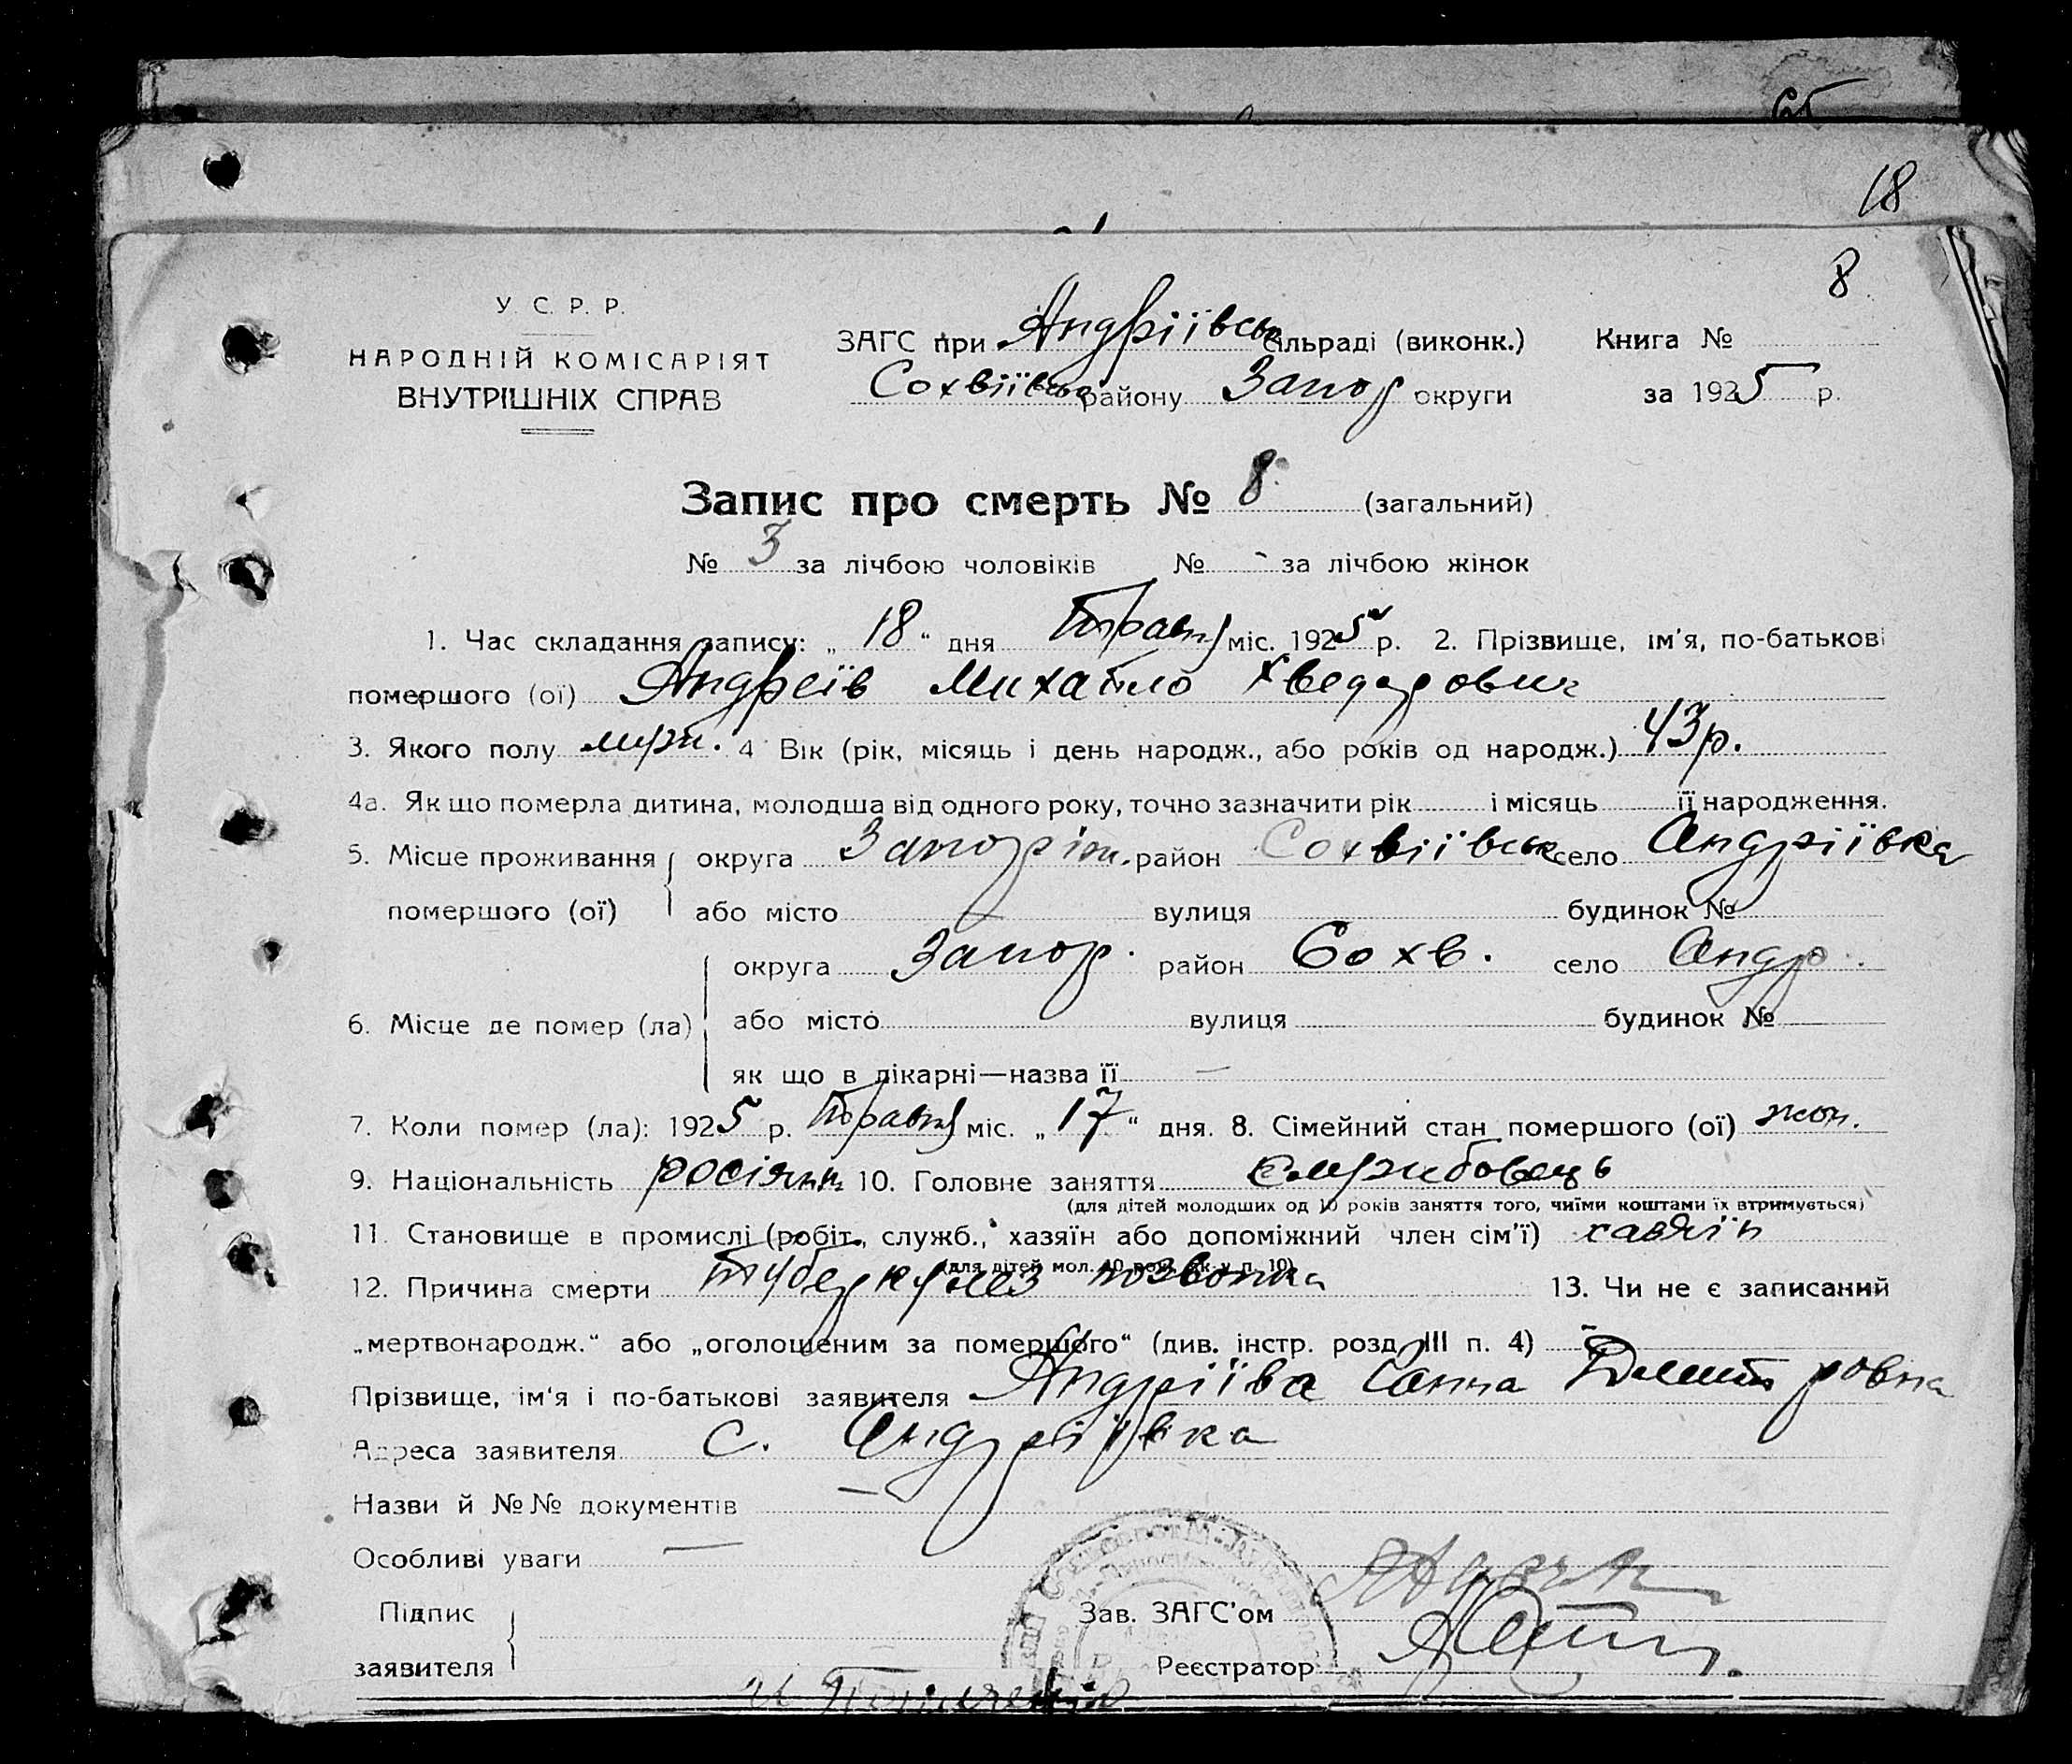 65
18
8
У. С. Р. Р.
НАРОДНІЙ КОМІСАРІЯТ
ВНУТРІШНІХ СПРАВ
ЗАГС при Андріївськ сільраді (виконк.) Книга №
Сохвіївськ району Запор округи за 1925 р.
Запис про смерть № 8 (загальний)
№ 3 за лічбою чоловіків № - за лічбою жінок
1. Час складання запису: „18“ дня Травня міс. 1925 р. 2. Прізвище, ім'я, по-батькові
помершого (ої) Андреїв Михайло Хведорович
3. Якого полу муж. 4 Вік (рік, місяць і день народж., або років од народж.) 43 р.
4а. Як що померла дитина, молодша від одного року, точно зазначити рік і місяць її народження.
5. Місце проживання округа Запоріж. район Сохвіївськ село Андріївка
помершого (ої) або місто вулиця будинок №
округа Запор. район Сохв. село Андр.
6. Місце де помер (ла) або місто вулиця будинок №
як що в лікарні—назва її —
7. Коли помер (ла): 1925 р. Травня міс. „17“ дня. 8. Сімейний стан помершого (ої) жон.
9. Національність росіянин 10. Головне заняття
(для дітей молодших од 10 років заняття того, чиїми коштами їх втримується)
11. Становище в промислі (робіт., служб., хазяїн або допоміжний член сім'ї) хазяїн
(для дітей мол. 10 рок. як у п. 10)
12. Причина смерти туберкульоз позвонка 13. Чи не є записаний
„мертвонародж.“ або „оголошеним за помершого“ (див. інстр. розд. III п. 4) -
Прізвище, ім'я і по-батькові заявителя Андріїва Ганна Дмитровна
Адреса заявителя с. Андріївка
Назви й №№ документів —
Особливі уваги —
Підпис
заявителя
Зав. ЗАГС'ом
Реєстратор